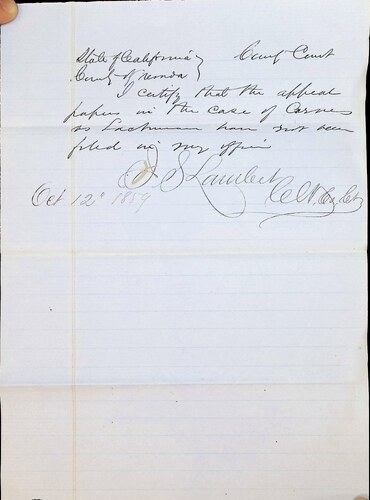 State of California } County Court
County of Nevada }
I certify that the appeal
papers in the case of Carnes
vs Lachman have not been
filed in my office
J S Lambert
Oct 12th 1859 Clk Co Ct